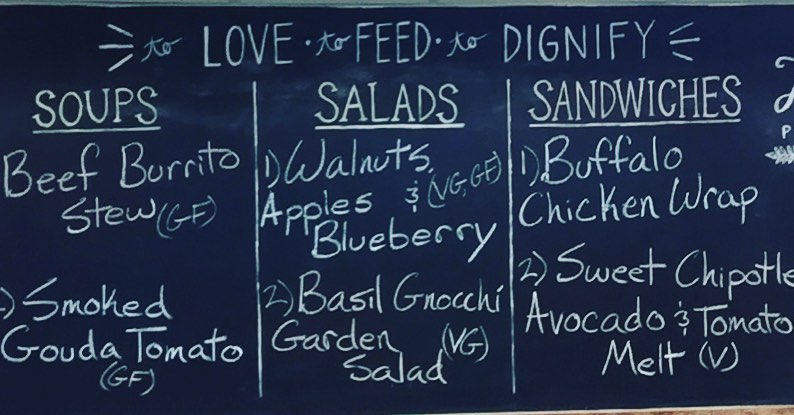 to LOVE · to FEED · to DIGNIFY
SOUPS
Beef Burrito
Stew (GF)
) Smoked
Gouda Tomato
(GF)
SALADS
1) Walnuts,
Apples & (VG, GF)
Blueberry
2) Basil Gnocchi
Garden (VG)
Salad
SANDWICHES
1) Buffalo
Chicken Wrap
2) Sweet Chipotle
Avocado & Tomato
Melt (V)
P